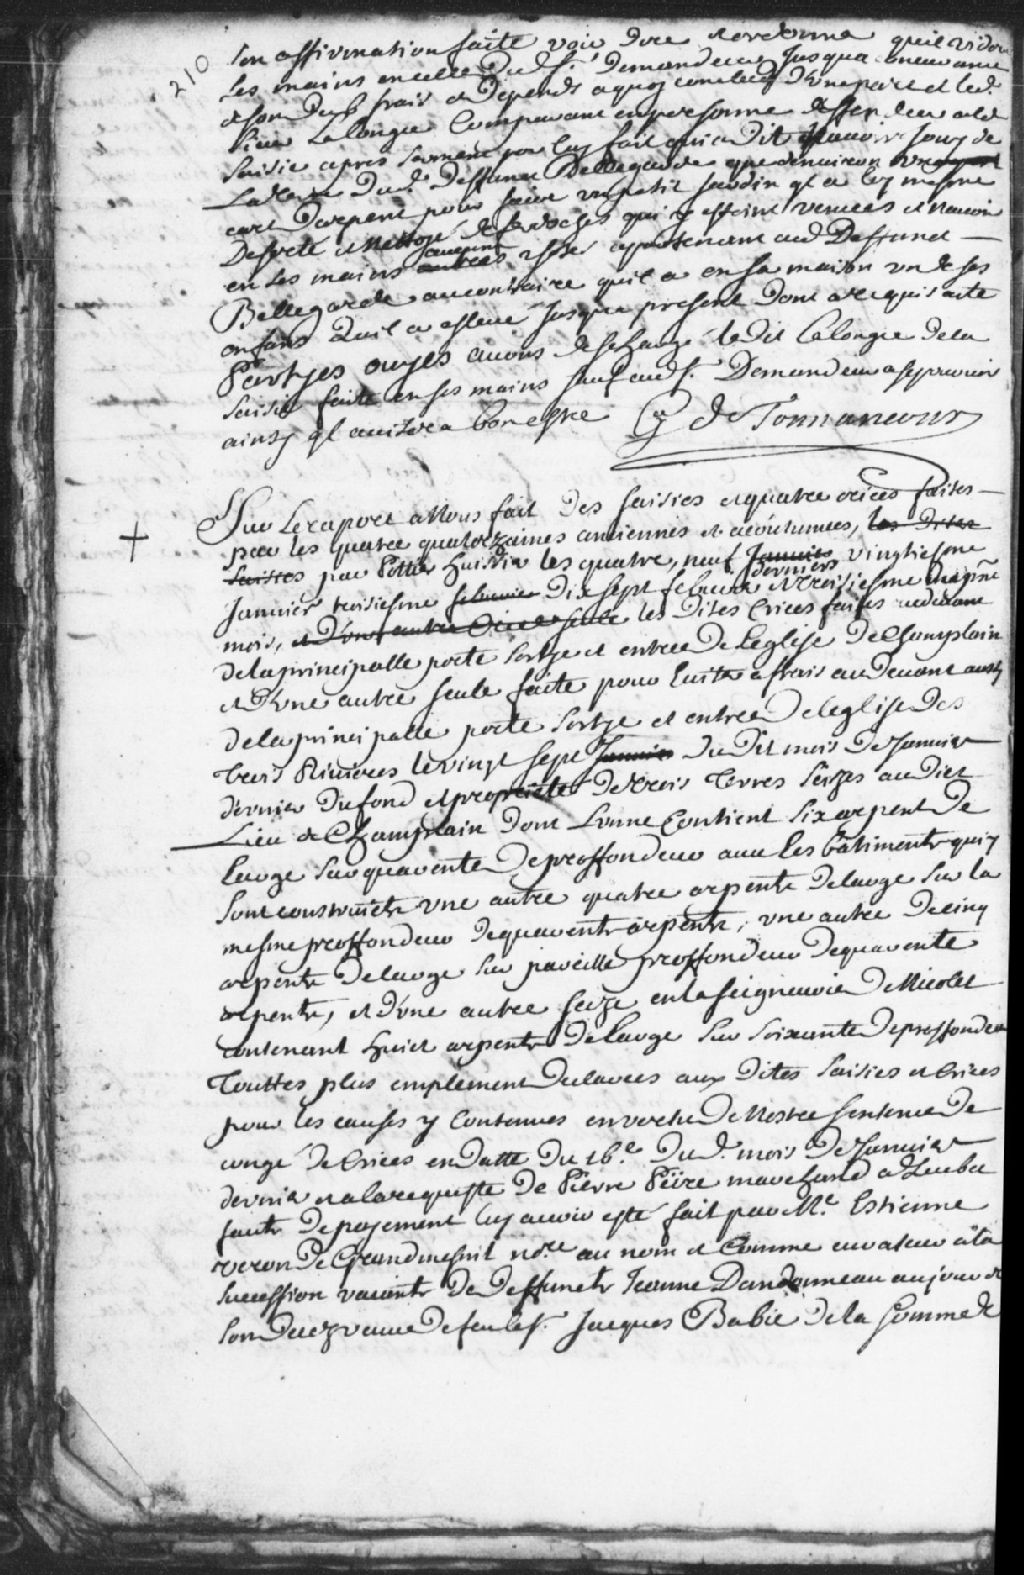 210
son affirmation faite voir dire et ordonné quil videra
ses mains en celle dud. Sr. demandeur jusqua concurance
de son deub frais et depends a quoy conclud d'une part et led.
Lalongue comparant en personne deffendeur aud.
saisie apres serment par luy fait qui a dit navoir jouy de
la terre dud. deffunct Bellegarde que denviron un
cart darpent pour faire un petit jardin ql a luy mesme
deserté et nettoyé de qui y estoint venues et navoir
en ses mains aucune chose apartenant aud. deffunct
Bellegarde aucontraire quil a en sa maison un de ses
enfans quil a eslevé jusqua present dont a requis acte
Partyes ouyes avons deschargé ledit Lalongue de la
saisie faite en ses mains sauf aud. Sr. Demandeur a se pourvoir
ainsy ql avisera bon estre G de Tonnancour
+
Sur le raport a Nous fait des saisies et quatre criees faites
par les quatre quatorzaines anciennes et acoutumees, les dites
saisies par Pottier huissier les quatre, neuf Janvier derniers vingtiesme
Janvier troisiesme febvrier dix sept febvrier et troisiesme du pñt
mois, et d'une autre criee seule les dites criees faites audevant
de la principalle porte sortye et entree de leglise de Champlain
et d'une autre seule faite pour eviter a frais au devant aussy
de la principalle porte sortye et entree de leglise des
trois Rivieres le vingt sept Janvier du dit mois de Janvier
dernier du fond et propriété de trois terres seizes au dict
Lieu de Champlain dont l'unne contient six arpent de
large sur quarente de proffondeur avec les bâtiments qui y
sont construicts une autre quatre arpents de large sur la
mesme proffondeur de quarente arpents, une autre de cinq
arpents de large sur pareille proffondeur de quarente
arpents, et d'une autre seize en la seigneurie de Nicolet
contenant huict arpents de large sur soixante de proffondeur
Touttes plus emplement declarees aux dites saisies et criees
pour les causes y contenues en vertu de Nostre sentence de
congé de criees en datte du 16e. du d. mois de Janvier
dernier et a la requeste de Pierre Peïre marchand a Quebec
faute de payement luy avoir esté fait par Me. Estienne
veron de Grandmesnil nore. au nom et comme curateur a la
succession vacante de deffuncte Jeanne Dandonneau au jour de
son decez veuve de feu le Sr. Jacques Babie de la somme de